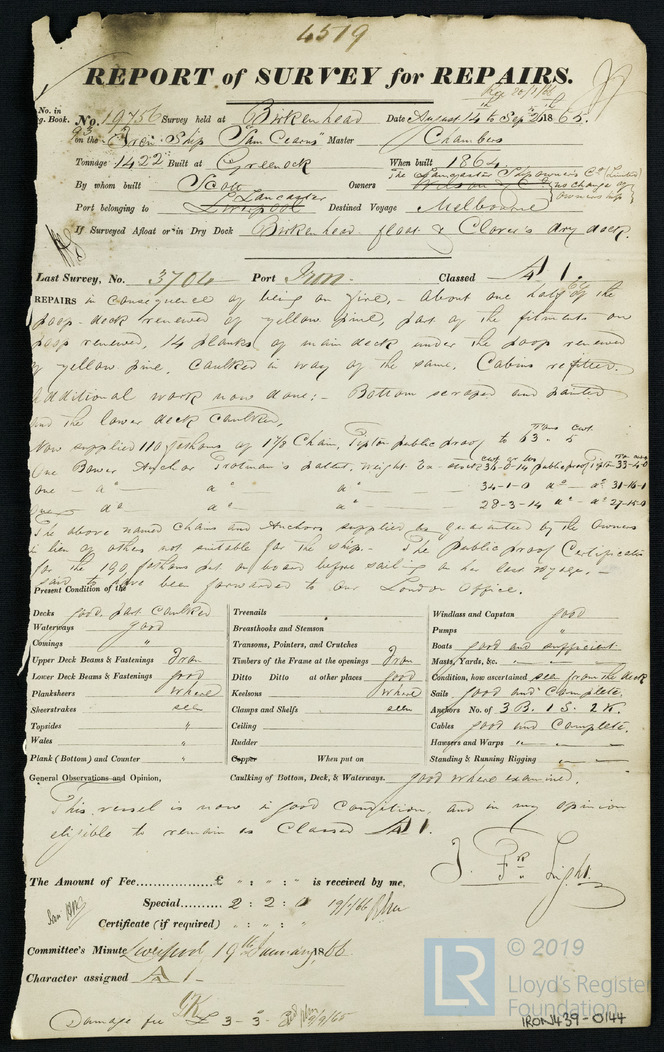 4519
REPORT of SURVEY for REPAIRS.
Rec 20/1/66
No. in
g. Book. No. 19756 Survey held at Birkenhead Date August 14 to Sep 2 1865.
on the Iron Ship "Sam Cearns" Master Chambers
Tonnage 1422 Built at Greenock When built 1864
The Lancaster Ship owners Co (Limited)
By whom built Scott Owners Wilson & Co change of
owners
Lancaster
Port belonging to Liverpool Destined Voyage Melbourne
If Surveyed Afloat or in Dry Dock Birkenhead float & Clover's dry dock.
Last Survey, No. 3704 Port Iron Classed A 1.
REPAIRS in consequence of being on fire, - About one half of the
poop-deck renewed of yellow pine, part of the fitments on
poop renewed, 14 planks of main deck under the poop renewed
of yellow pine, Caulked in way of the same, Cabins refitted.
Additional work now done:- Bottom scraped and painted
and the lower deck caulked,
tons cwt
Now supplied 110 fathoms of 1 7/8 Chain, Tipton public proof to 63 . 5
One Bower Anchor Trotman's patent, weight Ex-stock 34-0-14 public proof Tipton 33-4-0
one - do do do 34-1-0 do - do 31-16-1
one do do do 28-3-14 do - do 27-15-0
The above named Chains and Anchors supplied as guaranteed by the Owners
in lieu of others not suitable for the ship. - The public proof Certificates
for the 190 fathoms put on board before sailing on her last voyage, -
said to have been forwarded to our London Office.
Present Condition of the
Decks good, part caulked
Waterways good
Comings "
Upper Deck Beams & Fastenings Iron
Lower Deck Beams & Fastenings good
Planksheers where
Sheerstrakes seen
Topsides "
Wales "
Plank (Bottom) and Counter "
Treenails
Breasthooks and Stemson
Transoms, Pointers, and Crutches
Timbers of the Frame at the openings Iron
Ditto Ditto at other places good
Keelsons where
Clamps and Shelfs seen
Ceiling
Rudder
Copper When put on
Windlass and Capstan good
Pumps "
Boats good and sufficient
Masts, Yards, &c. "
Condition, how ascertained seen from the deck
Sails good and Complete.
Anchors No. of 3 B. 1 S. 2 K.
Cables good and Complete.
Hawsers and Warps " "
Standing & Running Rigging " "
General Observations and Opinion, Caulking of Bottom, Deck, & Waterways. good where examined.
This vessel is now in good condition, and in my opinion
eligible to remain as Classed A 1.
J. Fr. Light.
The Amount of Fee............... £ " : " : " is received by me,
Special......... 2 : 2 : 0 19/1/66
Certificate (if required) " : " : "
Committee's Minute Liverpool, 19th January 1866
Character assigned A 1
Damage fee £ 3-3-
© 2019
LR
Lloyd's Register
Foundation
IRON439-0144